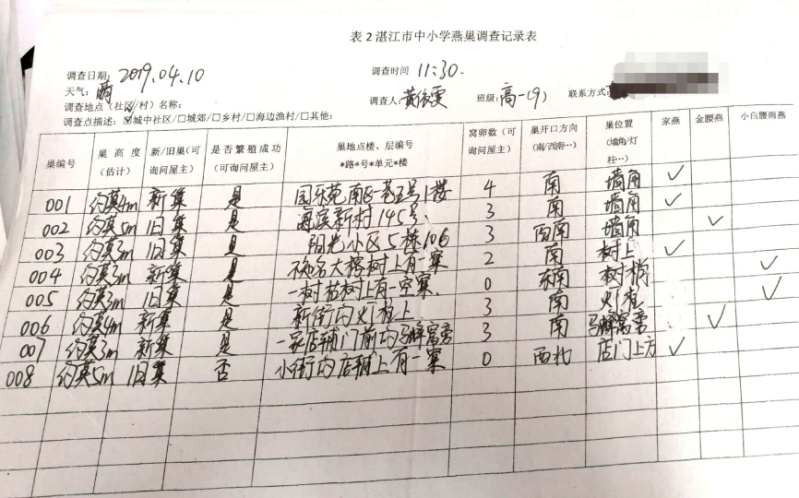 表2 湛江市中小学燕巢调查记录表
调查日期: 2019.04.10 调查时间 11:30.
天气: 晴 调查人: 黄 雯 班级: 高一(9) 联系方式:
调查地点(社区/村)名称:
调查点描述: ☑城中社区/□城郊/□乡村/□海边渔村/□其他:
巢编号 巢高度(估计) 新/旧巢(可询问屋主) 是否繁殖成功(可询问屋主) 巢地点楼、层编号 *路*号*单元*楼 窝卵数(可询问屋主) 巢开口方向(南/西南…) 巢位置(墙角/灯柱…) 家燕 金腰燕 小白腰雨燕
001 约莫4m 新巢 是 国乐苑南 巷 号1楼 4 南 墙角 ✓
002 约莫5m 旧巢 是 海滨新村145号. 3 南 墙角 ✓
003 约莫3m 旧巢 是 阳光小区5栋106 3 西南 墙角 ✓
004 约莫3m 新巢 是 不知名大榕树上有一窠 2 南 树上 ✓
005 约莫3m 旧巢 是 一树枝树上有一空窠. 0 东南 树梢 ✓
006 约莫4m 新巢 是 新街的火 柱上 3 南 火 柱 ✓
007 约莫3m 新巢 是 一家店铺门前的 窗旁 3 南 窗旁 ✓
008 约莫5m 旧巢 否 小街的店铺上有一窠 0 西北 店门上方 ✓